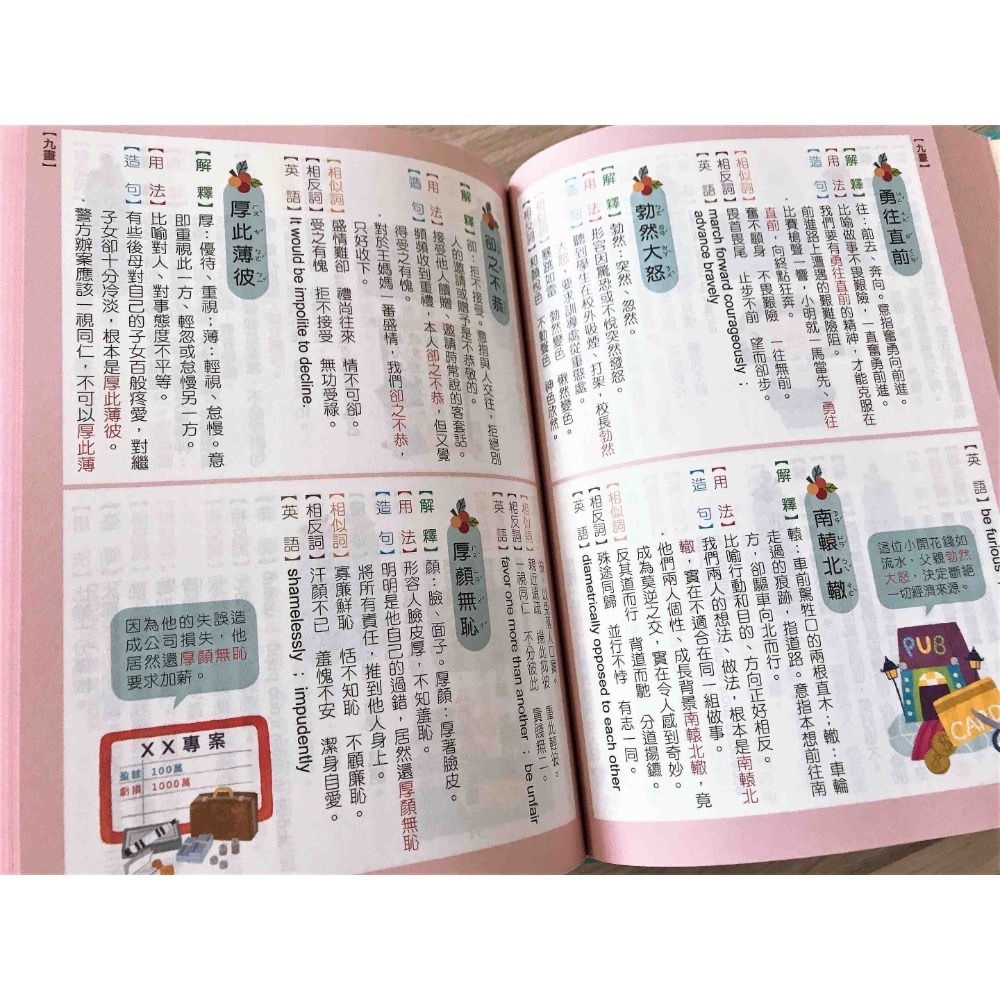 【九畫】
勇往直前
【解 釋】往：前去、奔向。意指奮勇向前進。
【用 法】比喻做事不畏艱險，一直奮勇前進。
【造 句】我們要有勇往直前的精神，才能克服在
前進路上遭遇的艱難險阻。
．比賽槍聲一響，小明就一馬當先、勇往
直前，向終點狂奔。
【相似詞】奮不顧身 不畏艱險 一往無前。
【相反詞】畏首畏尾 止步不前 望而卻步。
【英 語】march forward courageously；
advance bravely
勃然大怒
【解 釋】勃然：突然、忽然。
【用 法】形容因驚恐或不悅突然發怒。
【造 句】聽到學生在校外吸煙、打架，校長勃然
大怒，要求訓導處從重懲處。
【相似詞】暴跳如雷 勃然變色 愀然變色。
【相反詞】和顏悅色 不動聲色 神色欣然。
【英 語】be furious
這位小開花錢如
流水，父親勃然
大怒，決定斷絕
一切經濟來源。
PUB
CARD
南轅北轍
【解 釋】轅：車前駕牲口的兩根直木；轍：車輪
走過的痕跡，指道路。意指本想前往南
方，卻驅車向北而行。
【用 法】比喻行動和目的、方向正好相反。
【造 句】我們兩人的想法、做法，根本是南轅北
轍，實在不適合在同一組做事。
．他們兩人個性、成長背景南轅北轍，竟
成為莫逆之交，實在令人感到奇妙。
【相似詞】反其道而行 背道而馳 分道揚鑣。
【相反詞】殊途同歸 並行不悖 有志一同。
【英 語】diametrically opposed to each other
【九畫】
卻之不恭
【解 釋】卻：拒不接受。意指與人交往，拒絕別
人的邀請或贈予是不恭敬的。
【用 法】接受他人饋贈、邀請時常說的客套話。
【造 句】頻頻收到重禮，本人卻之不恭，但又覺
得受之有愧。
．對於王媽媽一番盛情，我們卻之不恭，
只好收下。
【相似詞】盛情難卻 禮尚往來 情不可卻。
【相反詞】受之有愧 拒不接受 無功受祿。
【英 語】It would be impolite to decline.
厚此薄彼
【解 釋】厚：優待、重視；薄：輕視、怠慢。意
即重視此一方、輕忽或怠慢另一方。
【用 法】比喻對人、對事態度不平等。
【造 句】有些後母對自己的子女百般疼愛，對繼
子女卻十分冷淡，根本是厚此薄彼。
．警方辦案應該一視同仁，不可以厚此薄
【相似詞】親近遠疏 揚此抑彼 重此輕彼。
【相反詞】一視同仁 不分彼此
【英 語】favor one more than another；be unfair
厚顏無恥
【解 釋】顏：臉、面子。厚顏：厚著臉皮。
【用 法】形容人臉皮厚，不知羞恥。
【造 句】明明是他自己的過錯，居然還厚顏無恥
將所有責任，推到他人身上。
【相似詞】寡廉鮮恥 恬不知恥 不顧廉恥。
【相反詞】汗顏不已 羞愧不安 潔身自愛。
【英 語】shamelessly；impudently
因為他的失誤，造
成公司損失，他
居然還厚顏無恥
要求加薪。
XX專案
盈餘 100萬
虧損 1000萬